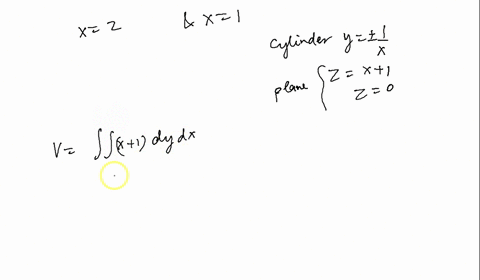 x = 2 & x = 1
cylinder y = ± 1/x
plane { z = x+1
z = 0
V = ∫∫ (x+1) dy dx